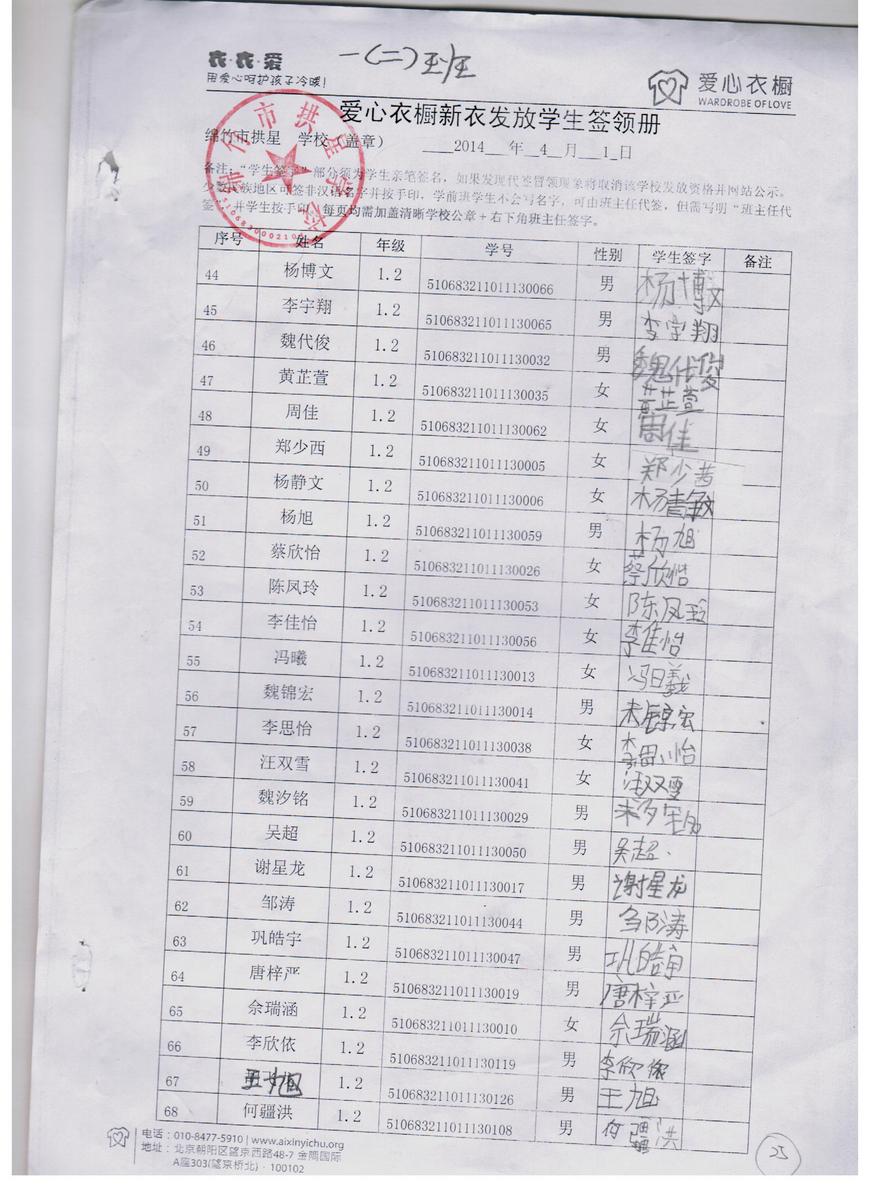 衣·衣·爱
用爱心呵护孩子冷暖!
一(二)班
爱心衣橱
WARDROBE OF LOVE
爱心衣橱新衣发放学生签领册
绵竹市拱星 学校(盖章) 2014 年 4 月 1 日
备注:“学生签字”部分须为学生亲笔签名,如果发现代签冒领现象将取消该学校发放资格并网站公示。
少数民族地区可签非汉语名字并按手印,学前班学生不会写名字,可由班主任代签,但需写明“班主任代
签”,并学生按手印。每页均需加盖清晰学校公章+右下角班主任签字。
序号 姓名 年级 学号 性别 学生签字 备注
44 杨博文 1.2 510683211011130066 男 杨博文
45 李宇翔 1.2 510683211011130065 男 李宇翔
46 魏代俊 1.2 510683211011130032 男 魏代俊
47 黄芷萱 1.2 510683211011130035 女 黄芷萱
48 周佳 1.2 510683211011130062 女 周佳
49 郑少西 1.2 510683211011130005 女 郑少茜
50 杨静文 1.2 510683211011130006 女
51 杨旭 1.2 510683211011130059 男 杨旭
52 蔡欣怡 1.2 510683211011130026 女 蔡欣怡
53 陈凤玲 1.2 510683211011130053 女 陈凤玲
54 李佳怡 1.2 510683211011130056 女 李佳怡
55 冯曦 1.2 510683211011130013 女 冯曦
56 魏锦宏 1.2 510683211011130014 男
57 李思怡 1.2 510683211011130038 女 李思怡
58 汪双雪 1.2 510683211011130041 女 汪双雪
59 魏汐铭 1.2 510683211011130029 男
60 吴超 1.2 510683211011130050 男 吴超
61 谢星龙 1.2 510683211011130017 男 谢星龙
62 邹涛 1.2 510683211011130044 男 邹涛
63 巩皓宇 1.2 510683211011130047 男 巩皓宇
64 唐梓严 1.2 510683211011130019 男 唐梓严
65 佘瑞涵 1.2 510683211011130010 女 佘瑞涵
66 李欣依 1.2 510683211011130119 男 李欣依
67 王旭 1.2 510683211011130126 男 王旭
68 何疆洪 1.2 510683211011130108 男 何疆洪
电话:010-8477-5910 | www.aixinyichu.org
地址:北京朝阳区望京西路48-7 金隅国际
A座303(望京桥北)·100102
25